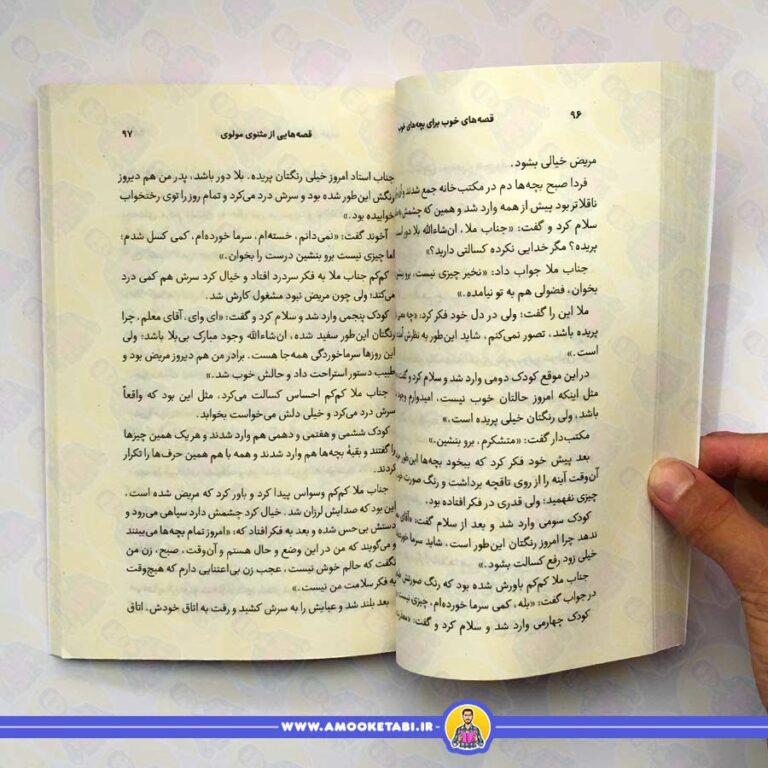 ۹۶
قصه‌های خوب برای بچه‌های خوب
مریض خیالی بشود.
فردا صبح بچه‌ها دم در مکتب‌خانه جمع شدند و
ناقلاتر بود پیش از همه وارد شد و همین که چشمش
سلام کرد و گفت: «جناب ملا، ان‌شاءالله بلا دور است
پریده؟ مگر خدایی نکرده کسالتی دارید؟»
جناب ملا جواب داد: «نخیر چیزی نیست، برو بنشین
بخوان، فضولی هم به تو نیامده.»
ملا این را گفت؛ ولی در دل خود فکر کرد: «چه
پریده باشد، تصور نمی‌کنم، شاید این‌طور به نظرش
است.»
در این موقع کودک دومی وارد شد و سلام کرد و گفت:
مثل اینکه امروز حالتان خوب نیست، امیدوارم وجود
باشد، ولی رنگتان خیلی پریده است.»
مکتب‌دار گفت: «متشکرم، برو بنشین.»
بعد پیش خود فکر کرد که بیخود بچه‌ها این‌طور
آن‌وقت آینه را از روی تاقچه برداشت و رنگ صورت خود
چیزی نفهمید؛ ولی قدری در فکر افتاده بود.
کودک سومی وارد شد و بعد از سلام گفت: «آقای
ندهد چرا امروز رنگتان این‌طور است، شاید سرما
خیلی زود رفع کسالت بشود.»
جناب ملا کم‌کم باورش شده بود که رنگ صورتش
در جواب گفت: «بله، کمی سرما خورده‌ام، چیزی نیست
کودک چهارمی وارد شد و سلام کرد و گفت:
قصه‌هایی از مثنوی مولوی
۹۷
جناب استاد امروز خیلی رنگتان پریده. بلا دور باشد، پدر من هم دیروز
رنگش این‌طور شده بود و سرش درد می‌کرد و تمام روز را توی رختخواب
خوابیده بود.»
آخوند گفت: «نمی‌دانم، خسته‌ام، سرما خورده‌ام، کمی کسل شدم؛
اما چیزی نیست برو بنشین درست را بخوان.»
کم‌کم جناب ملا به فکر سردرد افتاد و خیال کرد سرش هم کمی درد
می‌کند؛ ولی چون مریض نبود مشغول کارش شد.
کودک پنجمی وارد شد و سلام کرد و گفت: «ای وای، آقای معلم، چرا
رنگتان این‌طور سفید شده، ان‌شاءالله وجود مبارک بی‌بلا باشد؛ ولی
این روزها سرماخوردگی همه‌جا هست. برادر من هم دیروز مریض بود و
طبیب دستور استراحت داد و حالش خوب شد.»
جناب ملا کم‌کم احساس کسالت می‌کرد. مثل این بود که واقعاً
سرش درد می‌کرد و خیلی دلش می‌خواست بخوابد.
کودک ششمی و هفتمی و دهمی هم وارد شدند و هر یک همین چیزها
را گفتند و بقیهٔ بچه‌ها هم وارد شدند و همه با هم همین حرف‌ها را تکرار
کردند.
جناب ملا کم‌کم وسواس پیدا کرد و باور کرد که مریض شده است.
این بود که صدایش لرزان شد. خیال کرد چشمش دارد سیاهی می‌رود و
دستش بی‌حس شده و بعد به فکر افتاد که: «امروز تمام بچه‌ها می‌بینند
و می‌گویند که من در این وضع و حال هستم و آن‌وقت، صبح، زن من
نگفت که حالم خوش نیست، عجب زن بی‌اعتنایی دارم که هیچ‌وقت
به فکر سلامت من نیست.»
بعد بلند شد و عبایش را به سرش کشید و رفت به اتاق خودش. اتاق
WWW.AMOOKETABI.IR